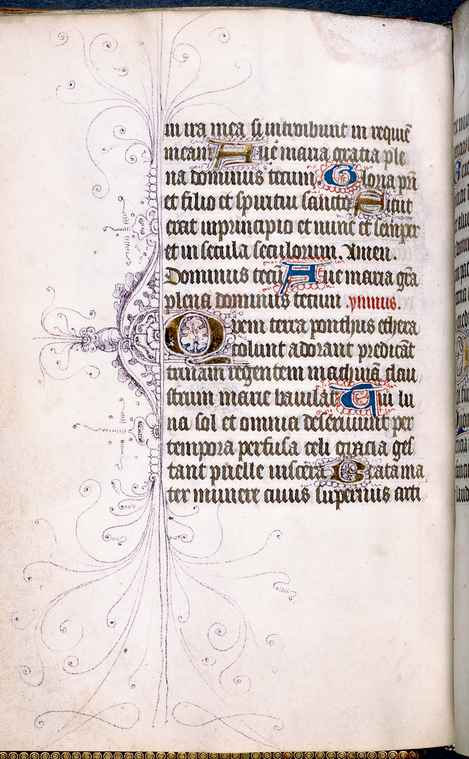 in ira mea si introibunt in requie̅
meam Aue maria gratia ple
na dominus tecum Gloria pr̅i
et filio et spiritui sancto Sicut
erat in principio et nunc et semper
et in secula seculorum. Amen.
Dominus tecu̅ Aue maria gr̅a
plena dominus tecum . ymnus.
Quem terra ponthus ethera
colunt adorant predica̅t
trinam regentem machina̅ clau
strum marie baiulat Cui lu
na sol et omnia deseruiunt per
tempora perfusa celi gracia ges
tant puelle uiscera Beata ma
ter munere cuius supernus arti